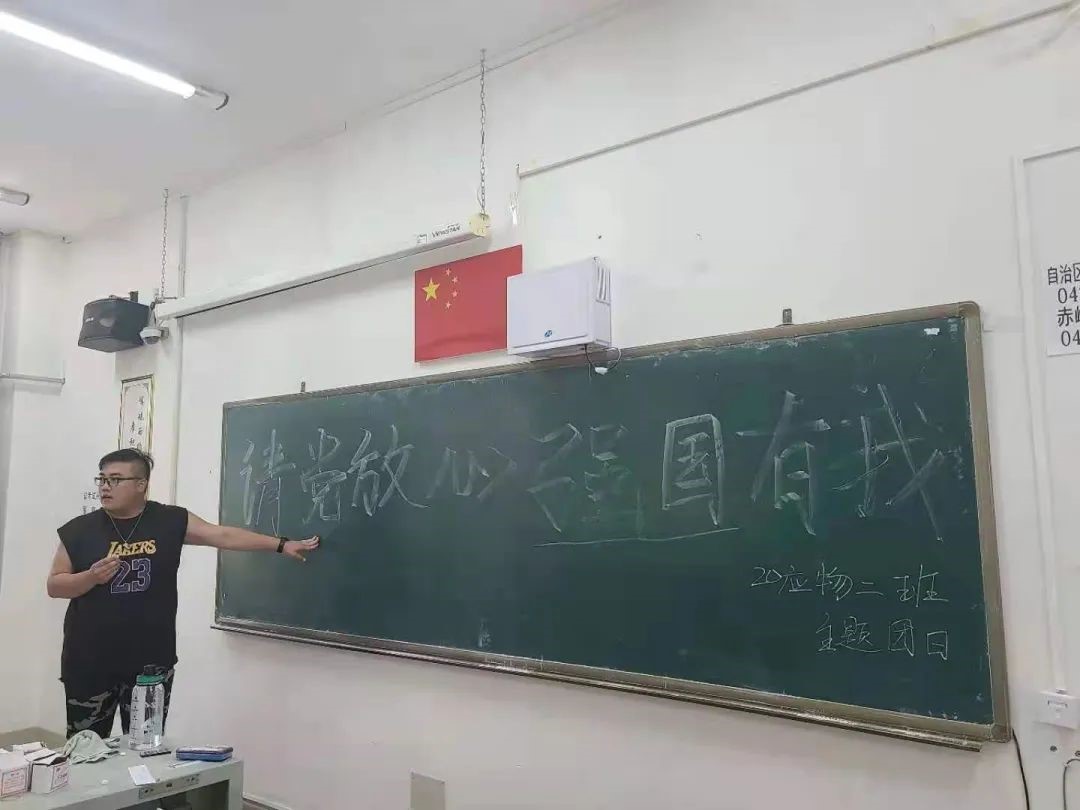 请党放心强国有我
20应物二班
主题团日
LAKERS
23
自治区
04
赤峰
04